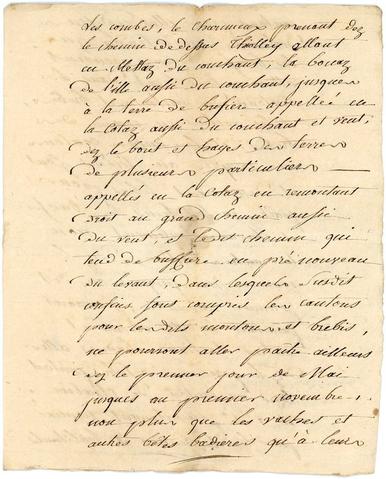 Les combes, le charmieux prenant dez
le chemin de dessus Tholley allant
en Mettaz du couchant, la boucaz
de l'ille aussi du couchant, jusques
à la terre de bussiere appellée en
la Cotaz aussi du couchant et vent,
dez le bout et hayes des terres
de plusieurs particuliers
appellés en la Cotaz en remontant
droit au grand chemin aussi
du vent, et ledit chemin qui
tend de bussiere en pré nouveau
du levant, dans lesquels susdit
confins sont compris les cantons
pour lesdits moutons, et brebis,
ne pourront aller paitre ailleurs
dez le premier jour de Mai
jusques au premier novembre,
non plus que les vaches et
autres bêtes à leur